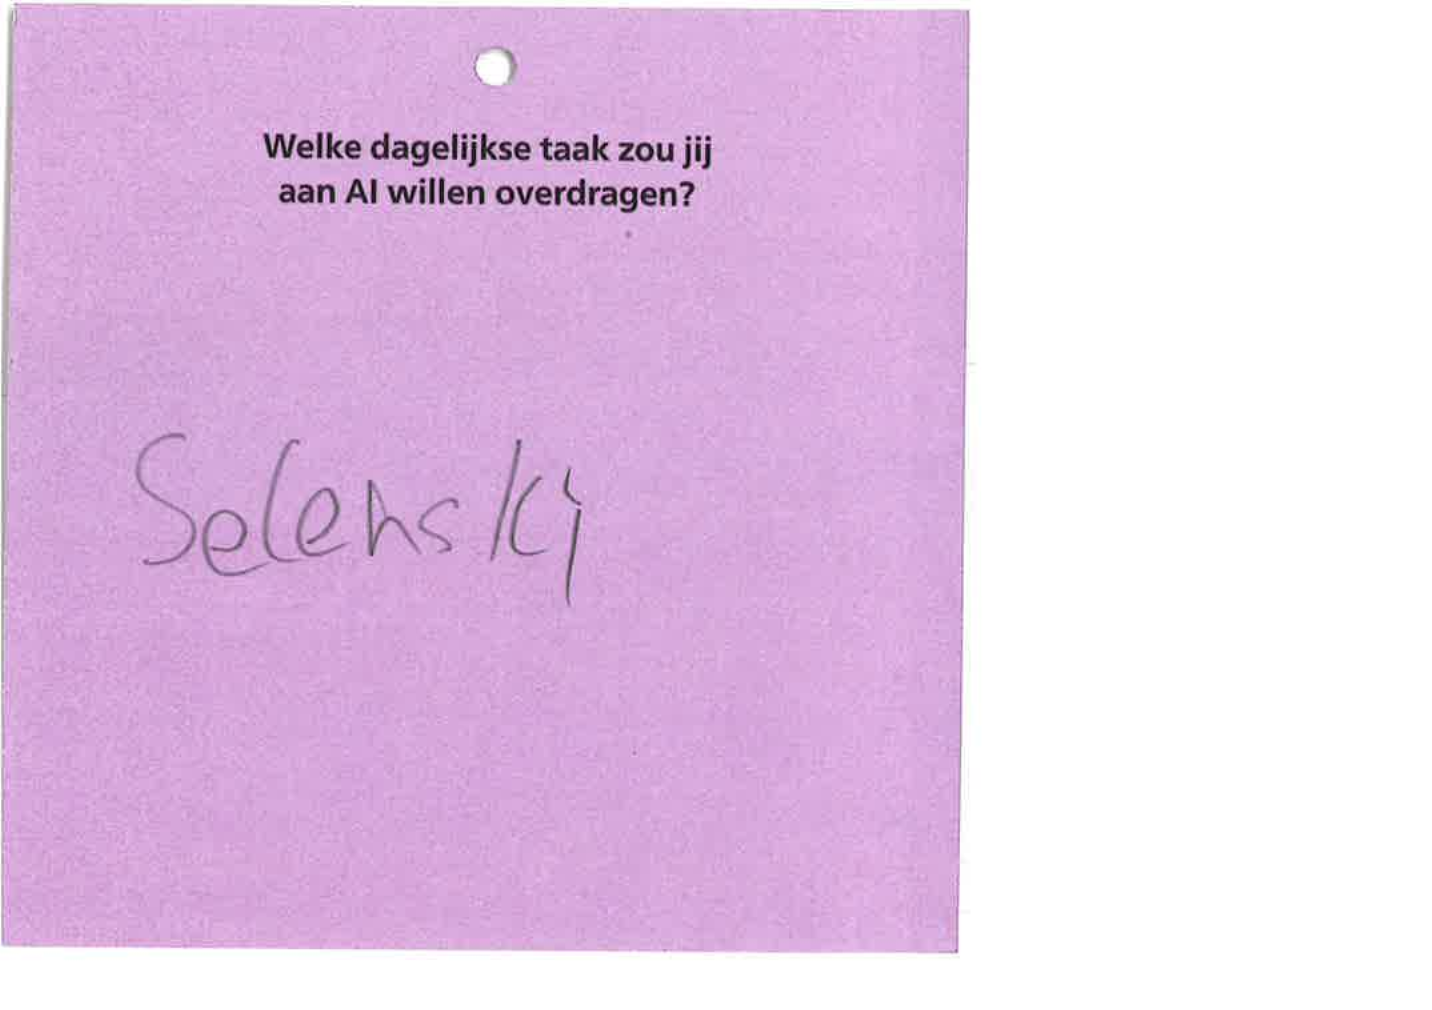 Welke dagelijkse taak zou jij
aan AI willen overdragen?
Selenskj